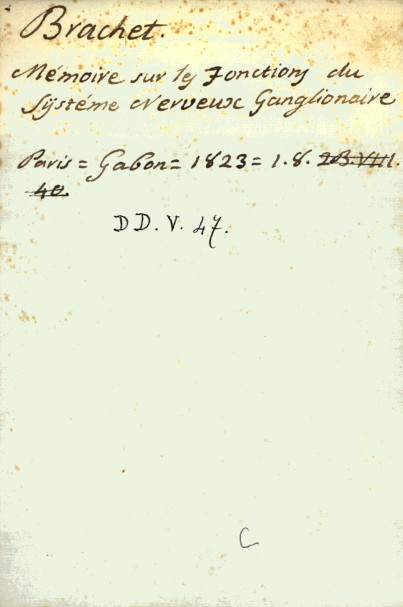 Brachet.
Mémoire sur les Fonctions du
Systéme Nerveux Ganglionaire
Paris = Gabon = 1823 = 1.8. 2B.VIII.
40.
DD. V. 47.
C